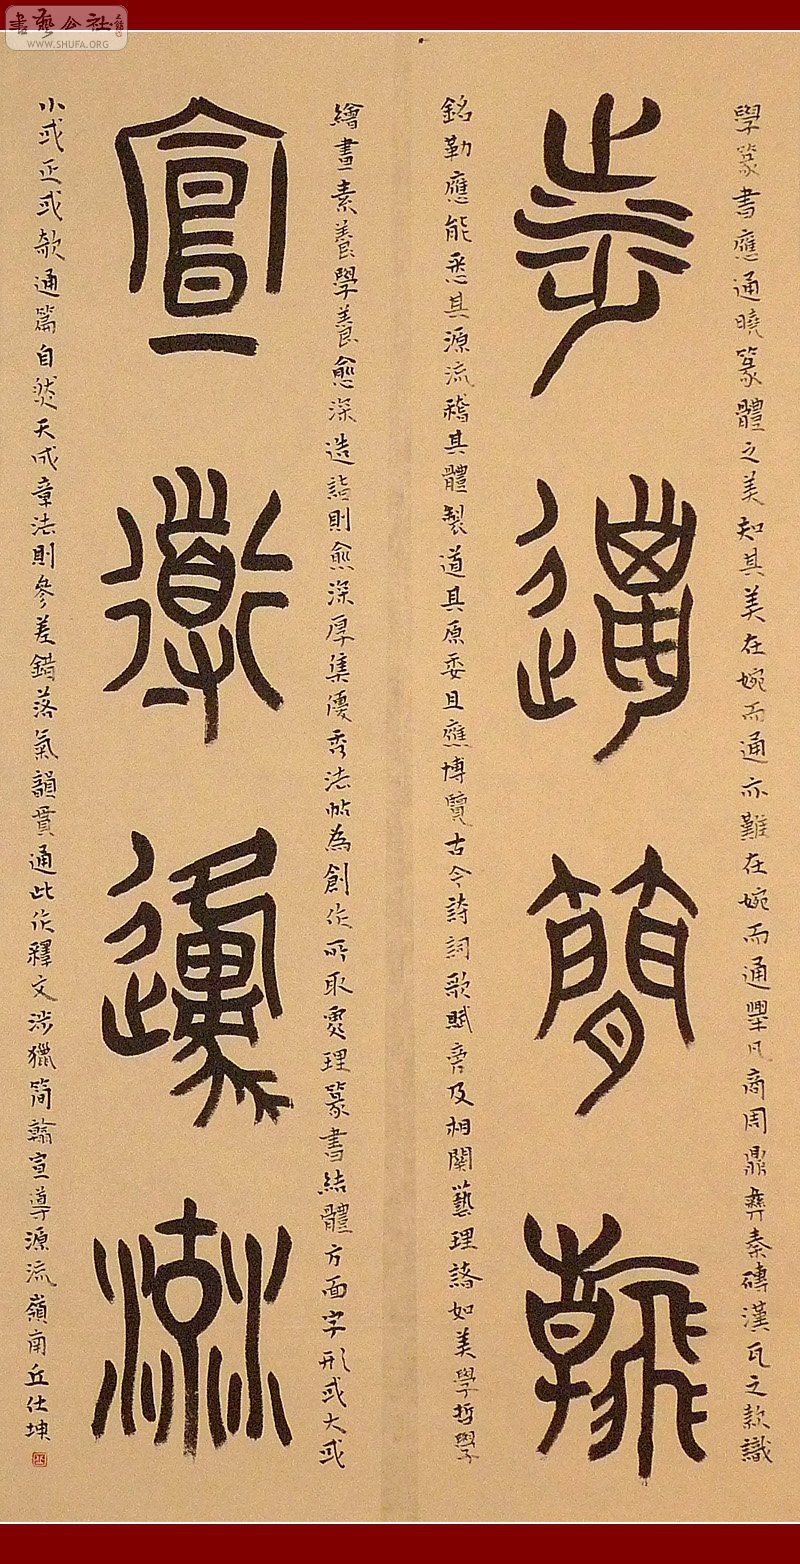 書藝公社
WWW.SHUFA.ORG
學篆書應通曉篆體之美知其美在婉而通亦難在婉而通舉凡商周鼎彝秦磚漢瓦之款識
涉獵簡翰
銘勒應能悉其源流稽其體製道其原委且應博覽古今詩詞歌賦旁及相關藝理諸如美學哲學
繪畫素養學養愈深造詣則愈深厚集優秀法帖為創作所取處理篆書結體方面字形或大或
宣導源流
小或正或欹通篇自然天成章法則參差錯落氣韻貫通此作釋文涉獵簡翰宣導源流嶺南丘仕坤